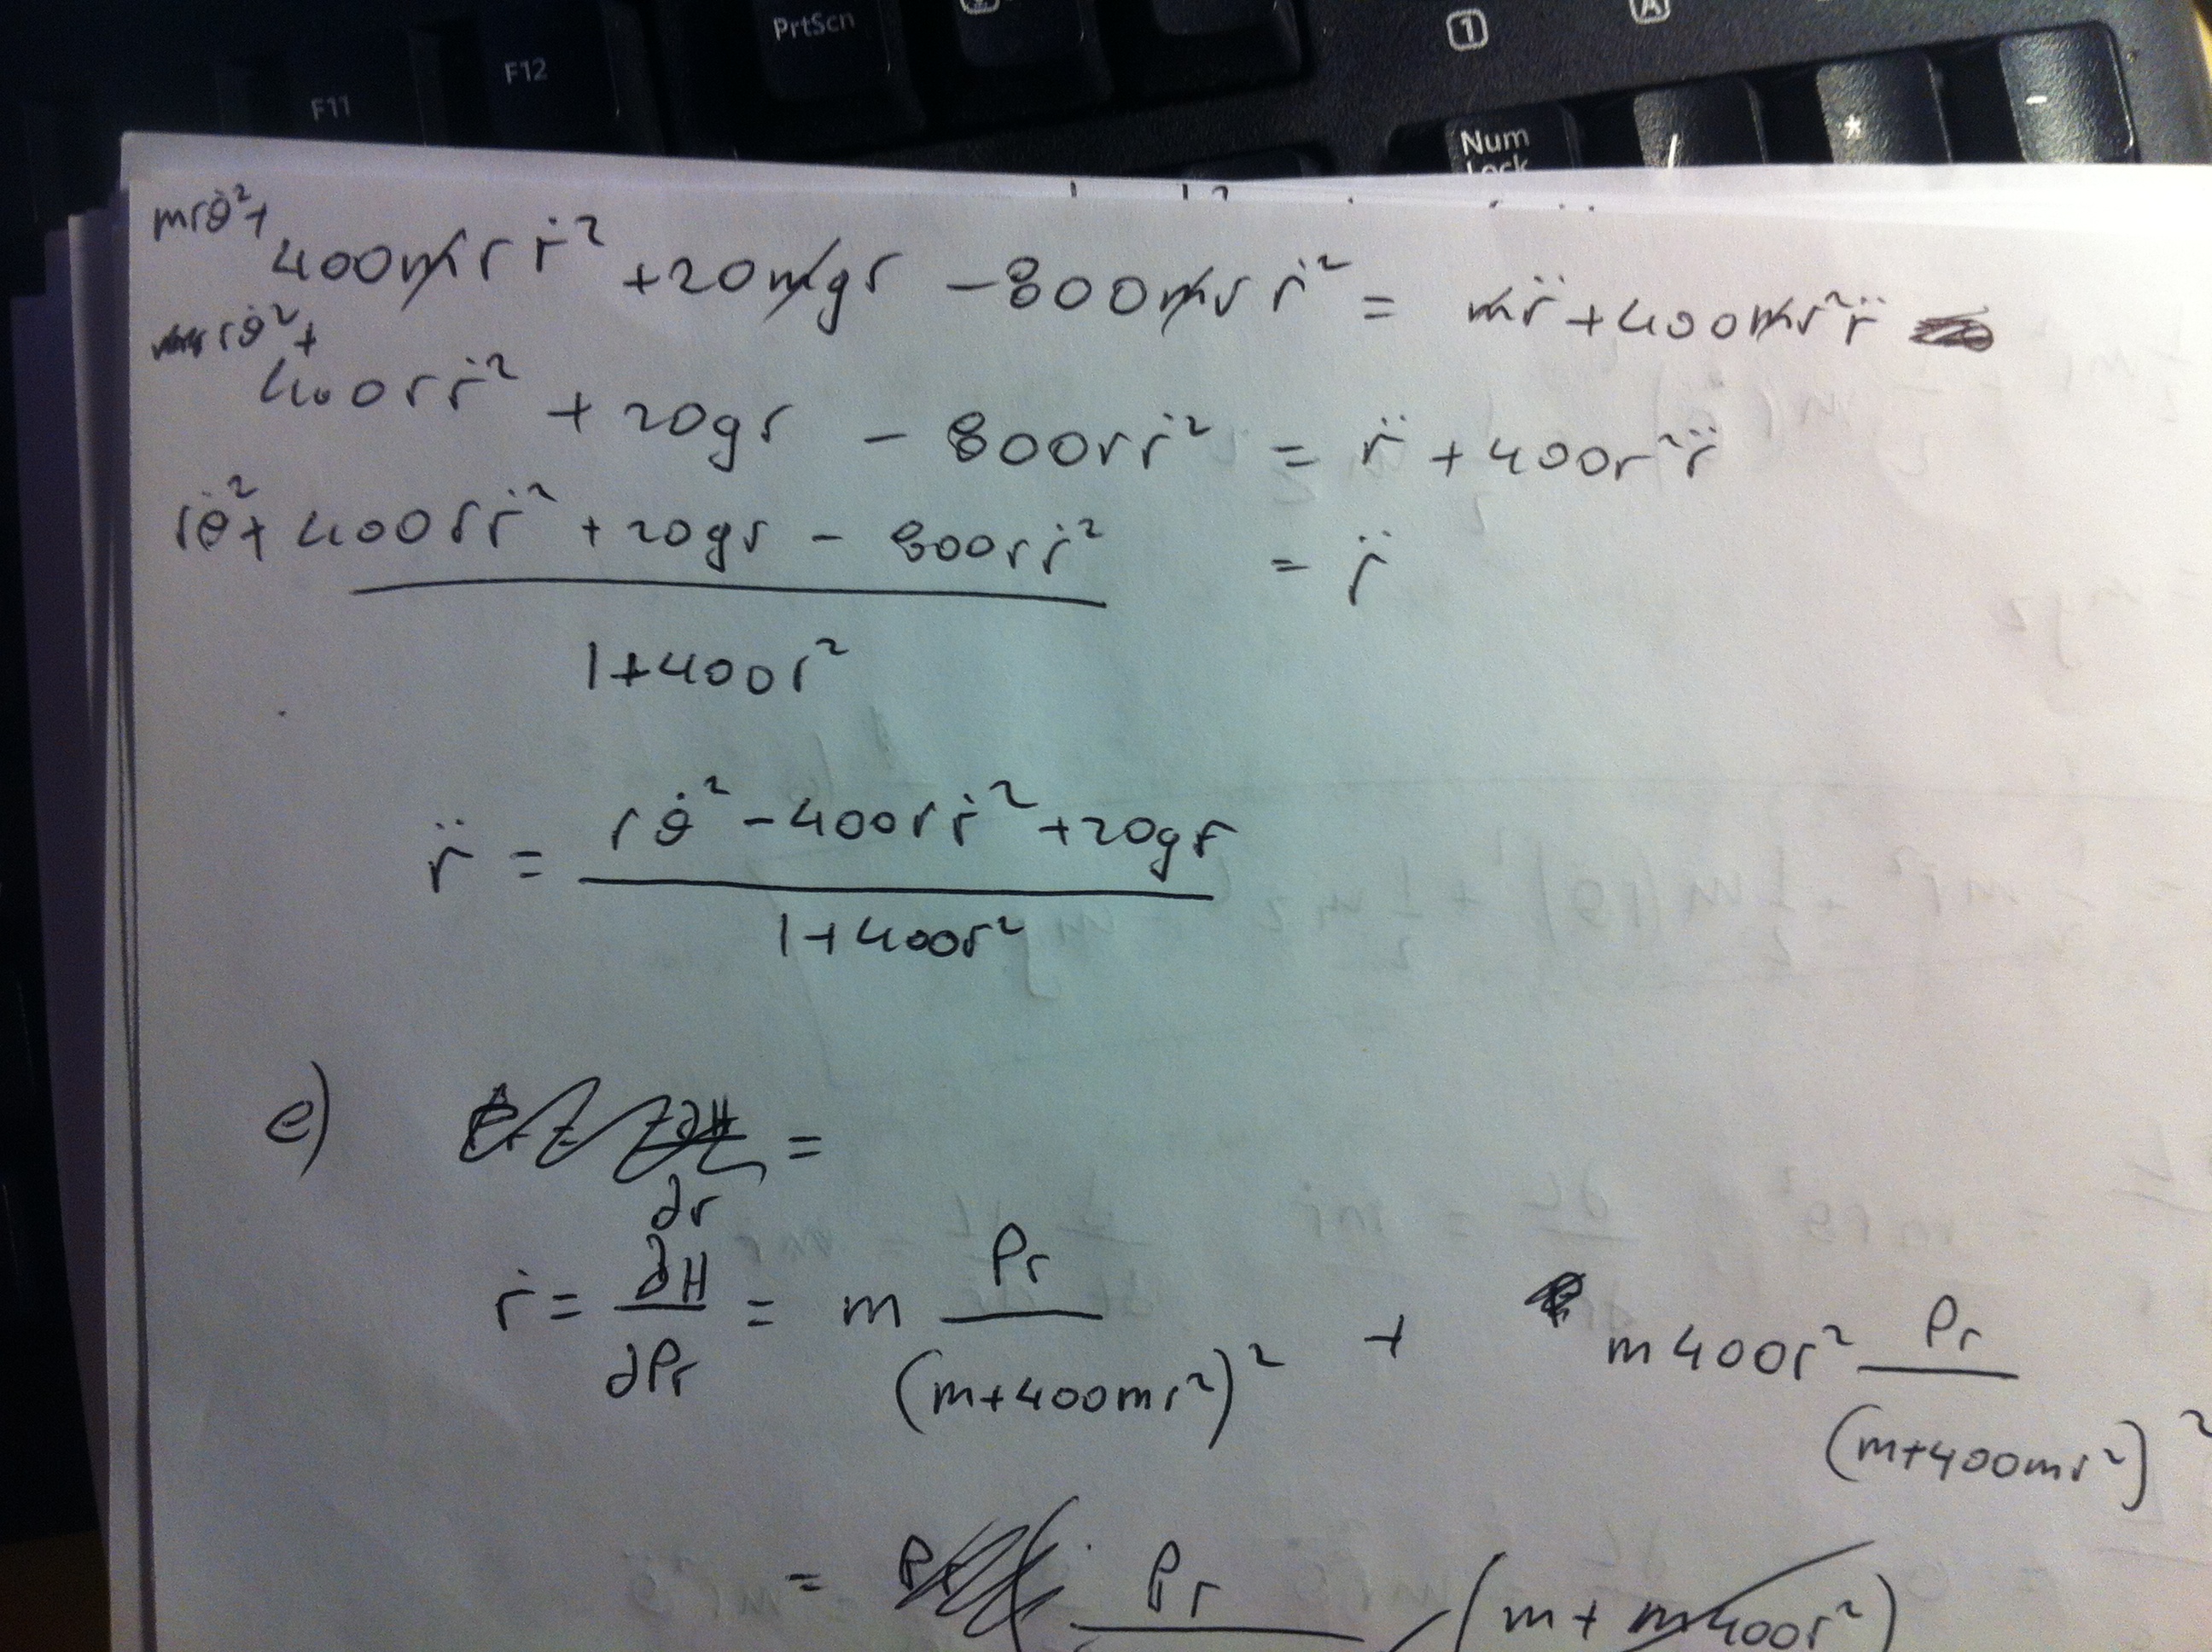 PrtScn
F12
F11
1
A
Num
Lock
/
*
-
mrθ̇²+
400mr ṙ² +20mgr −800mr ṙ² = mr̈ +400mr²r̈
rθ̇²+
400rṙ² + 20gr − 800rṙ² = r̈ + 400r²r̈
rθ̇²+ 400rṙ² + 20gr − 800rṙ² = r̈
1+400r²
r̈ = rθ̇² −400rṙ² +20gr
1+400r²
e) ∂H =
∂r
ṙ = ∂H/∂Pr = m Pr/(m+400mr²)² + m400r² Pr/(m+400mr²)²
= Pr (m + m400r²)